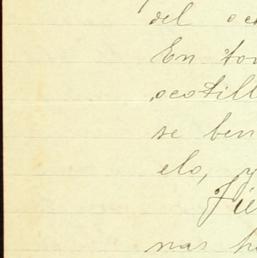 del oc
En to
ocotill
se ben
elo, y
Fie
nas h